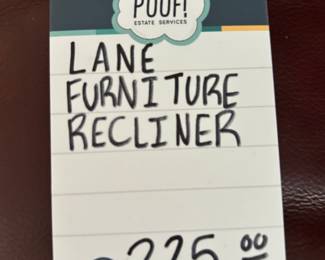 POOF!
ESTATE SERVICES
LANE
FURNITURE
RECLINER
225.00